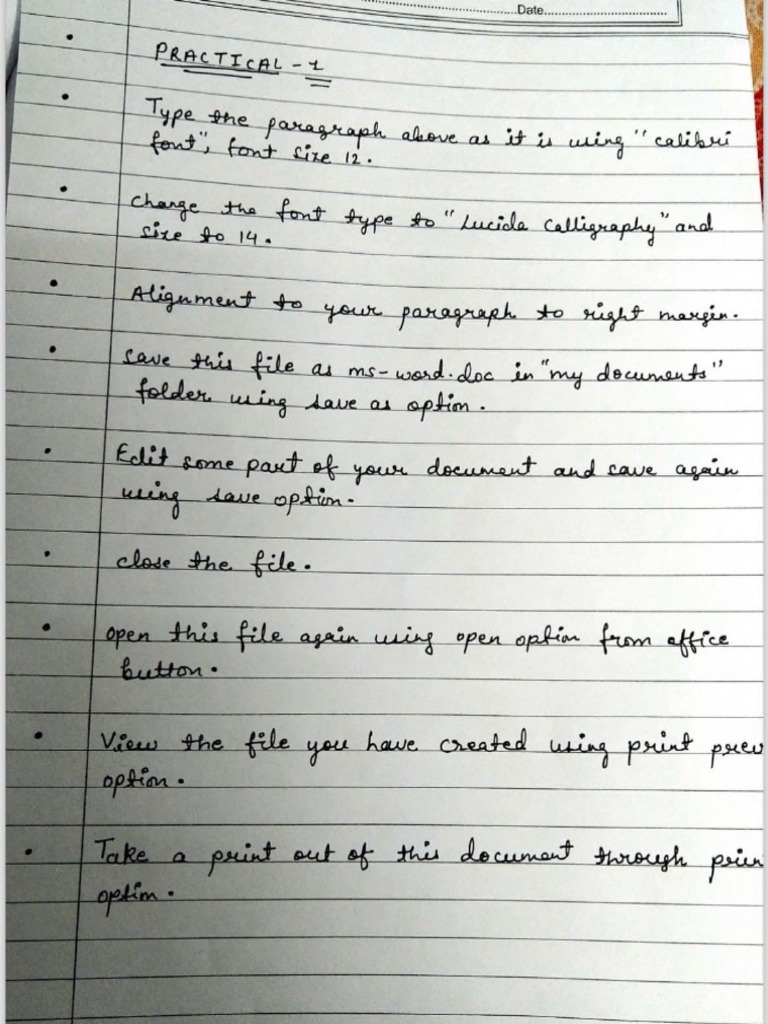 Date
PRACTICAL - 1
Type the paragraph above as it is using "calibri
font", font size 12.
change the font type to "Lucida Calligraphy" and
size to 14.
Alignment to your paragraph to right margin.
save this file as ms-word.doc in "my documents"
folder using save as option.
Edit some part of your document and save again
using save option.
close the file.
open this file again using open option from office
button.
View the file you have created using print prev
option.
Take a print out of this document through prin
option.